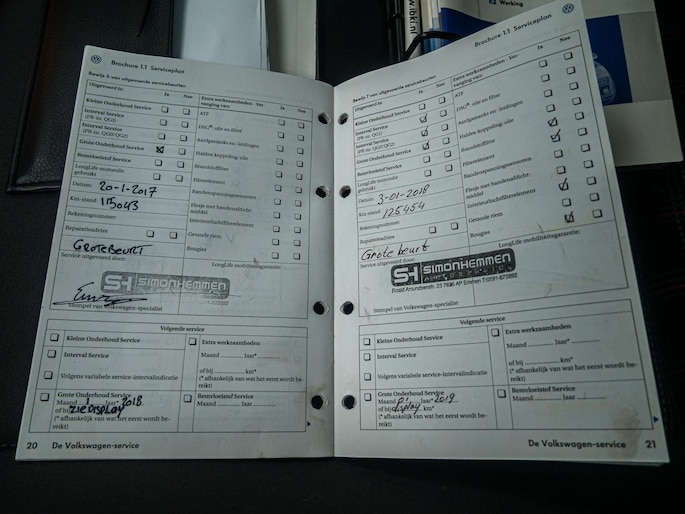 Working
Brochure 1.1 Serviceplan
Bewijs 6 van uitgevoerde servicebeurten
Uitgevoerd is:
Ja Nee
Kleine Onderhoud Service
Interval Service
(PR-nr. QG1)
Interval Service
(PR-nr. QG0/QG2)
Grote Onderhoud Service
Remvloeistof Service
LongLife motorolie
gebruikt
Datum: 20-1-2017
Km-stand: 115043
Rekeningnummer:
Reparatieadvies
GROTEBEURT
Service uitgevoerd door:
Extra werkzaamheden - Ver-
vanging van:
Ja Nee
ATF
DSG®, olie en filter
Aardgastanks en -leidingen
Haldex-koppeling; olie
Brandstoffilter
Filterelement
Bandenspanningssensoren
Flesje met bandenafdicht-
middel
Interieurluchtfilterelement
Getande riem
Bougies
LongLife mobiliteitsgarantie:
SH SIMONHEMMEN
Stempel van Volkswagen-specialist
Volgende service
Kleine Onderhoud Service
Interval Service
Volgens variabele service-intervalindicatie
Grote Onderhoud Service
Maand 1 Jaar* 2018
of bij ZIE DISPLAY
(* afhankelijk van wat het eerst wordt be-
reikt)
Extra werkzaamheden
Maand Jaar*
of bij km*
(* afhankelijk van wat het eerst wordt be-
reikt)
Remvloeistof Service
Maand Jaar
20 De Volkswagen-service
Brochure 1.1 Serviceplan
Bewijs 7 van uitgevoerde servicebeurten
Uitgevoerd is:
Ja Nee
Kleine Onderhoud Service
Interval Service
(PR-nr. QG1)
Interval Service
(PR-nr. QG0/QG2)
Grote Onderhoud Service
Remvloeistof Service
LongLife motorolie
gebruikt
Datum: 3-01-2018
Km-stand: 125454
Rekeningnummer:
Reparatieadvies
Grote beurt
Service uitgevoerd door:
Extra werkzaamheden - Ver-
vanging van:
Ja Nee
ATF
DSG®, olie en filter
Aardgastanks en -leidingen
Haldex-koppeling; olie
Brandstoffilter
Filterelement
Bandenspanningssensoren
Flesje met bandenafdicht-
middel
Interieurluchtfilterelement
Getande riem
Bougies
LongLife mobiliteitsgarantie:
SH SIMONHEMMEN
Roald Amundsenstr. 23 7825 AP Emmen T:0591-673882
Stempel van Volkswagen-specialist
Volgende service
Kleine Onderhoud Service
Interval Service
Volgens variabele service-intervalindicatie
Grote Onderhoud Service
Maand Jaar* 2019
of bij display km*
(* afhankelijk van wat het eerst wordt be-
reikt)
Extra werkzaamheden
Maand Jaar*
of bij km*
(* afhankelijk van wat het eerst wordt be-
reikt)
Remvloeistof Service
Maand Jaar
De Volkswagen-service 21